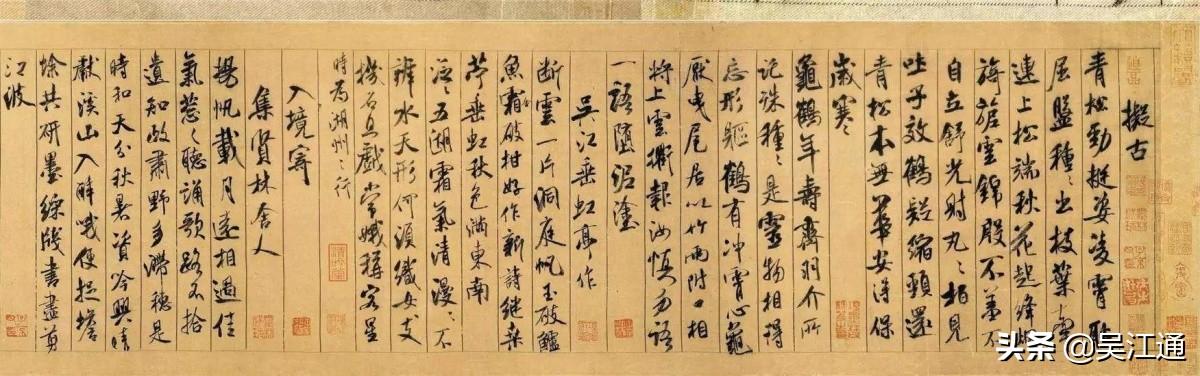 擬古
青松勁挺姿凌霄恥
屈盤種々出枝葉牽
連上松端秋花起絳煙
旖旎雲錦殷不羞不
自立舒光射丸々柏見
吐子效鶴疑縮頸還
青松本無華安得保
歲寒
龜鶴年壽齊羽介所
託殊種々是靈物相得
忘形軀鶴有冲霄心龜
厭曳尾居以竹兩附口相
將上雲衢報汝慎勿語
一語墮泥塗
吳江垂虹亭作
断雲一片洞庭帆玉破鱸
魚霜破柑好作新詩繼桒
苧垂虹秋色滿東南
泛々五湖霜氣清漫々不
辨水天形何須織女支
機石且戲常娥稱客星
時為湖州之行
入境寄
集賢林舍人
揚帆載月遠相過佳
氣葱々聽誦歌路不拾
遺知政肅野多滯穗是
時和天分秋暑資吟興晴
獻溪山入醉哦便捉蟾
蜍共研墨綵牋書盡剪
江波
头条 @吴江通